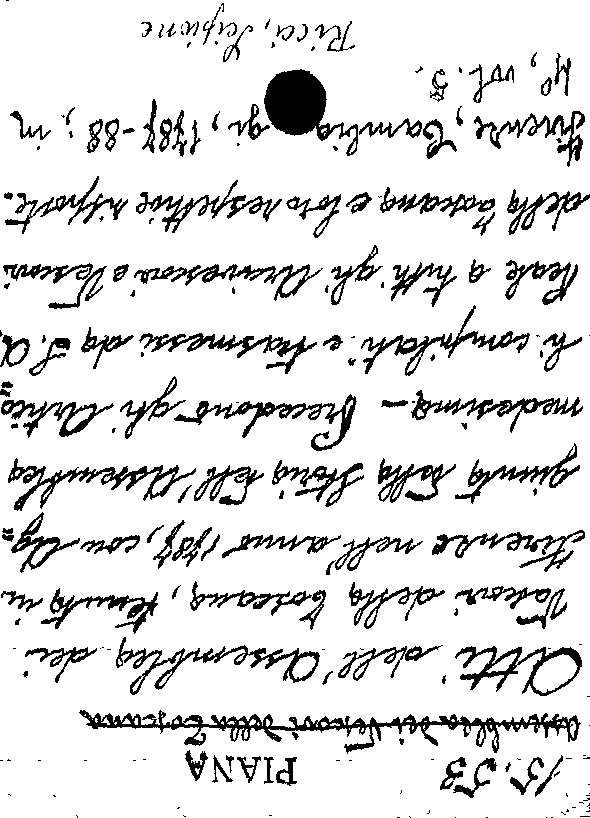 15. 53 PIANA
Assemblea dei Vescovi della Toscana
Atti dell'Assemblea dei
Vescovi della Toscana, tenuta in
Firenze nell'anno 1787, con Ag„
giunta della Storia dell'Assemblea
medesima - Precedono gli Artico„
li compilati e trasmessi da S. A.
Reale a tutti gli Arcivescovi e Vescovi
della Toscana e loro respettive risposte.
Firenze, Cambiagi, 1787-88; in
4º, vol. 5.
Ricci, Scipione